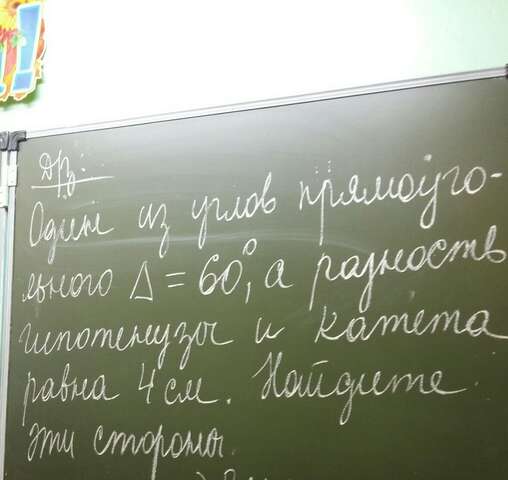 Д/З:
Один из углов прямоуго-
льного Δ = 60°, а разность
гипотенузы и катета
равна 4 см. Найдите
эти стороны.